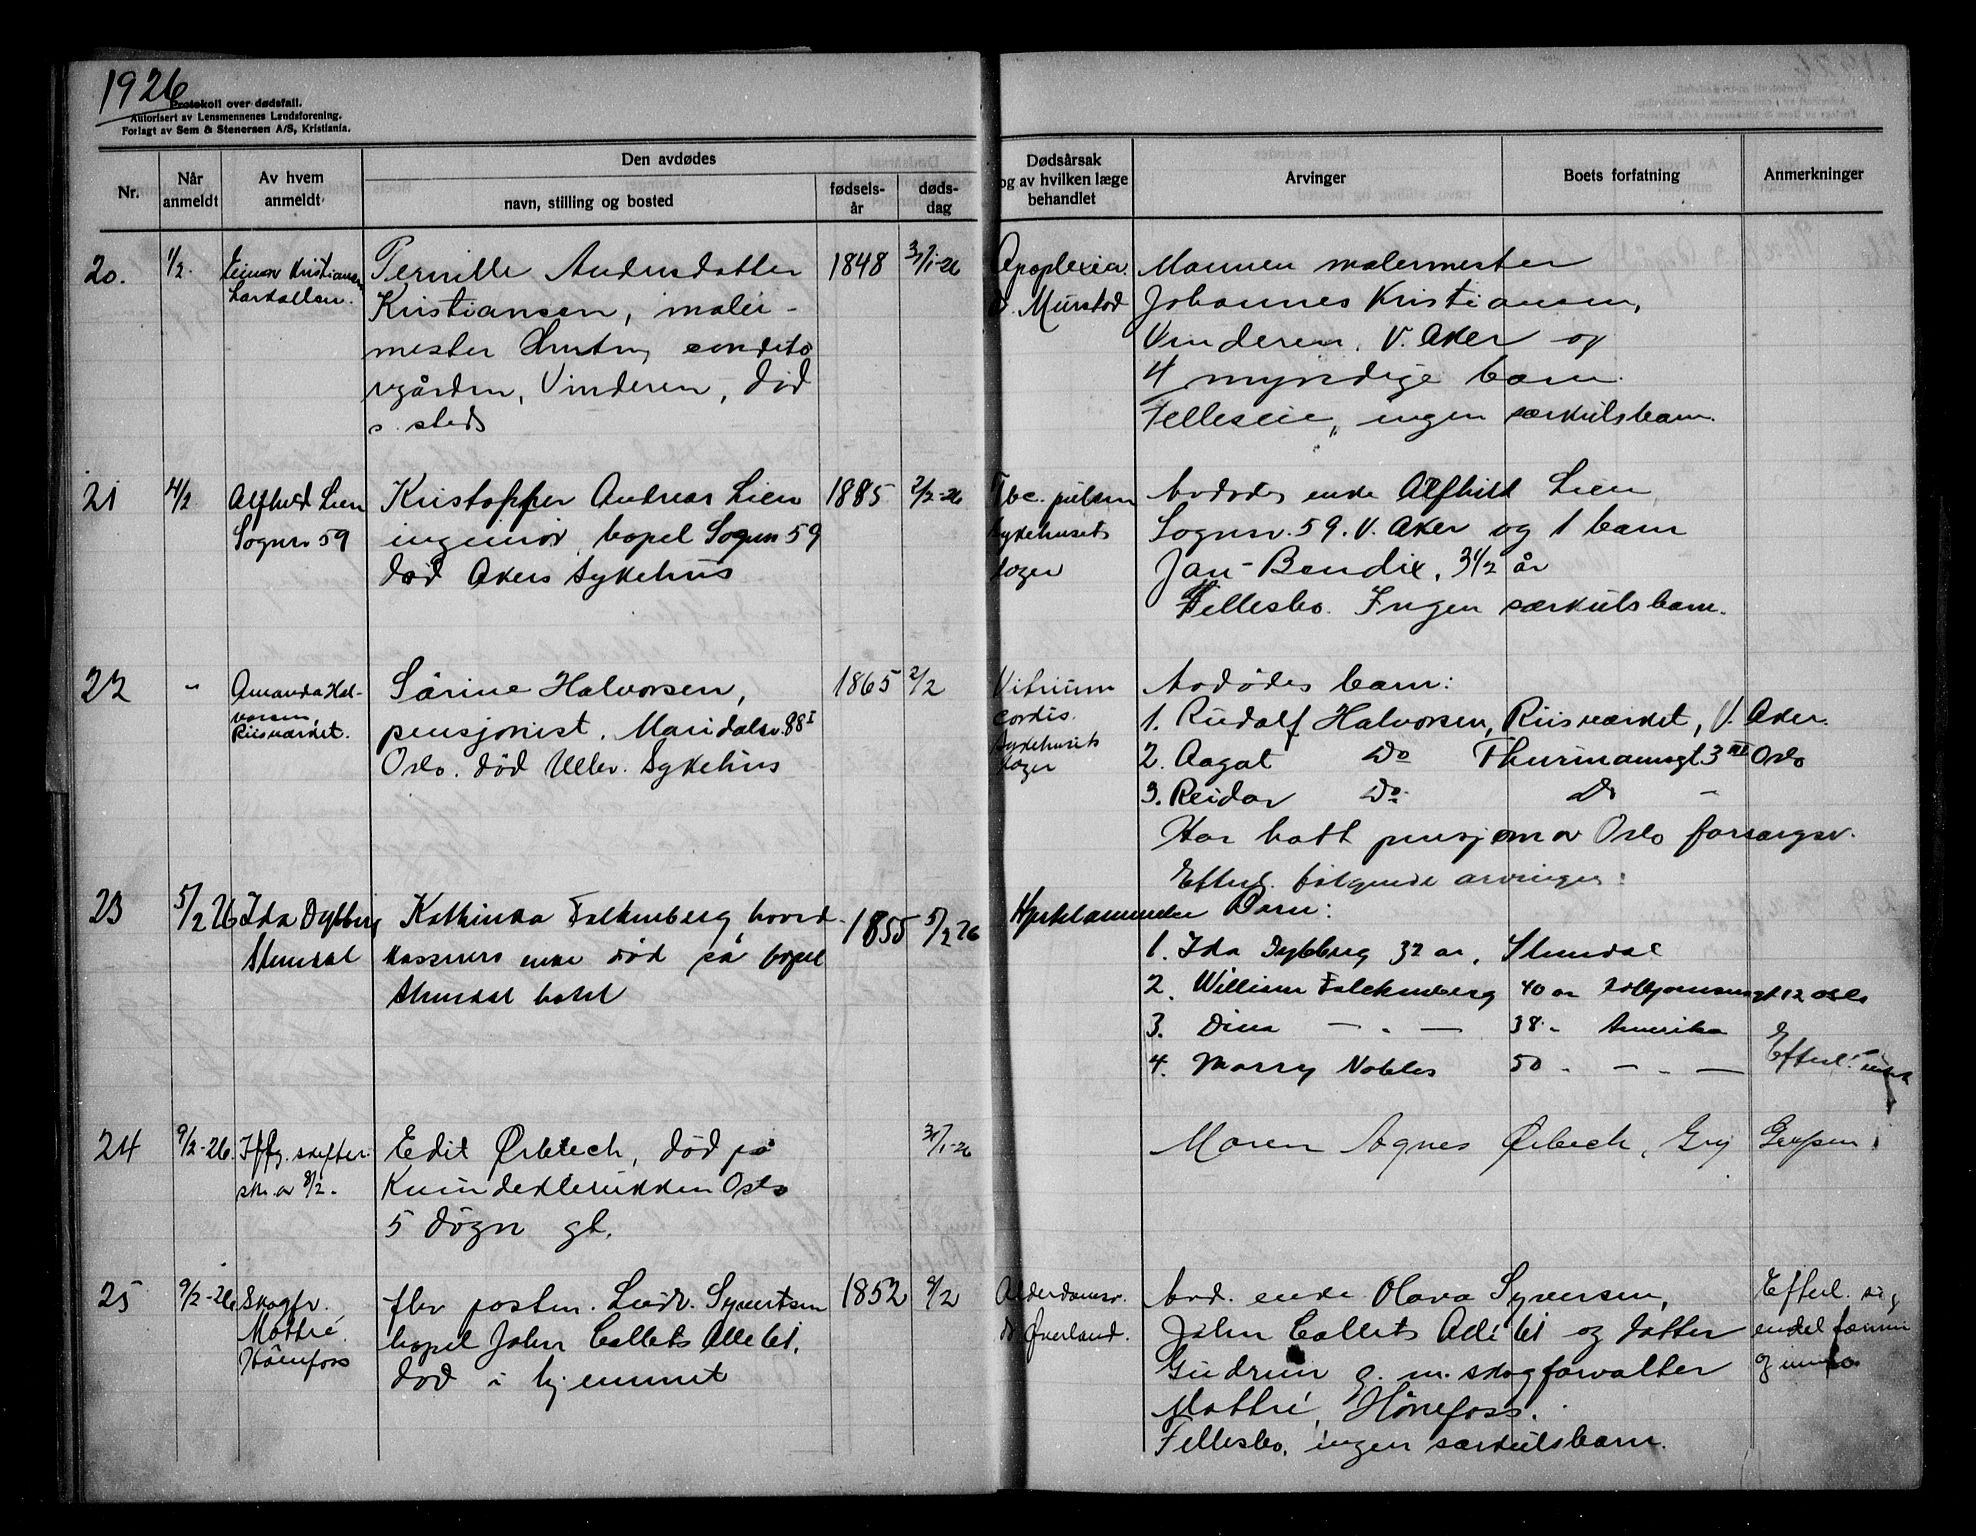 1926
Protokoll over dødsfall.
Autorisert av Lensmennenes Landsforening.
Forlagt av Sem & Stenersen A/S, Kristiania.
Nr.
Når anmeldt
Av hvem anmeldt
Den avdødes
navn, stilling og bosted
fødsels-år
døds-dag
Dødsårsak og av hvilken læge behandlet
Arvinger
Boets forfatning
Anmerkninger
20.
1/2.
Einar Kristiansen
Larkollen.
Pernille Andersdatter
Kristiansen, maler-
mester
Vinderen, død
s. steds
1848
31/1-26
Apoplexia
d. Murstad
Mannen malermester
Johannes Kristiansen,
Vinderen, V. Aker og
4 myndige barn.
Felleseie, ingen særkulsbarn.
21
4/2
Alfhild Lien
Sognsv 59
Kristoffer Andreas Lien
ingeniør, bopel Sognsv 59
død Akers Sykehus
1885
2/2-26
Tbc. pulm
Sykehusets
læger
Avdødes enke Alfhild Lien
Sognsv. 59. V. Aker og 1 barn
Jan-Bendix, 3 1/2 år
Fellesbo. Ingen særkulsbarn.
22
"
Amanda Hal-
vorsen,
Riisværket.
Sårine Halvorsen,
pensjonist, Maridalsv. 88 I
Oslo. død Ullev. Sykehus
1865
2/2
Vitium
cordis.
Sykehusets
læger
Avdødes barn:
1. Rudolf Halvorsen, Riisværket, V. Aker.
2. Aagot Do Thurmannsgt 3 III Oslo
3. Reidar Do. Do -
Har hatt pensjon av Oslo forsørgsv.
Efterl. følgende arvinger:
23
5/2 26
Ida Dybberg
Stensdal
Kathinka Falkenberg, hoved-
kasserers enke død på bopel
hotel
1855
5/2 26
Barn:
1. Ida Dybberg 32 år,
2. William Falckenberg 40 år 12 Oslo
3. Dina - " - 38 " Amerika
4. Marry Nobles 50 " - " -
Efterl. intet
24
9/2-26.
skifter.
skr. av 8/2.
Edit Ørbech, død på
Kvindeklinikken Oslo
5 døgn gl.
31/1-26
Maren Agnes Ørbech,
25
9/2-26
Skogfv.
Mathé.
Hönefoss
fhv postm. Ludv. Syvertsen
bopel John Collets Alle 61,
død i hjemmet
1852
9/2
Alderdomsv.
dr Øverland.
Avd. enke Olava Syversen,
John Collets Allé 61 og datter
Gudrun g. m. skogforvalter
Mathé, Hönefoss.
Fellesbo, ingen særkulsbarn.
Efterl. sig
endel
og innbo